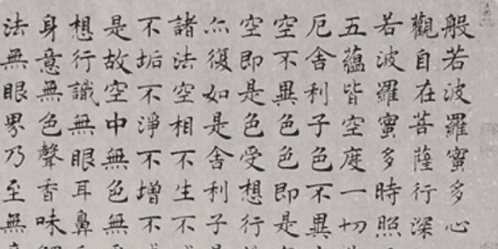 般若波羅蜜多心
觀自在菩薩行深
若波羅蜜多時照
五蘊皆空度一切
厄舍利子色不異
空不異色色即是
空即是色受想行
亦復如是舍利子
諸法空相不生不
不垢不淨不增不
是故空中無色無
想行識無眼耳鼻
身意無色聲香味
法無眼界乃至無